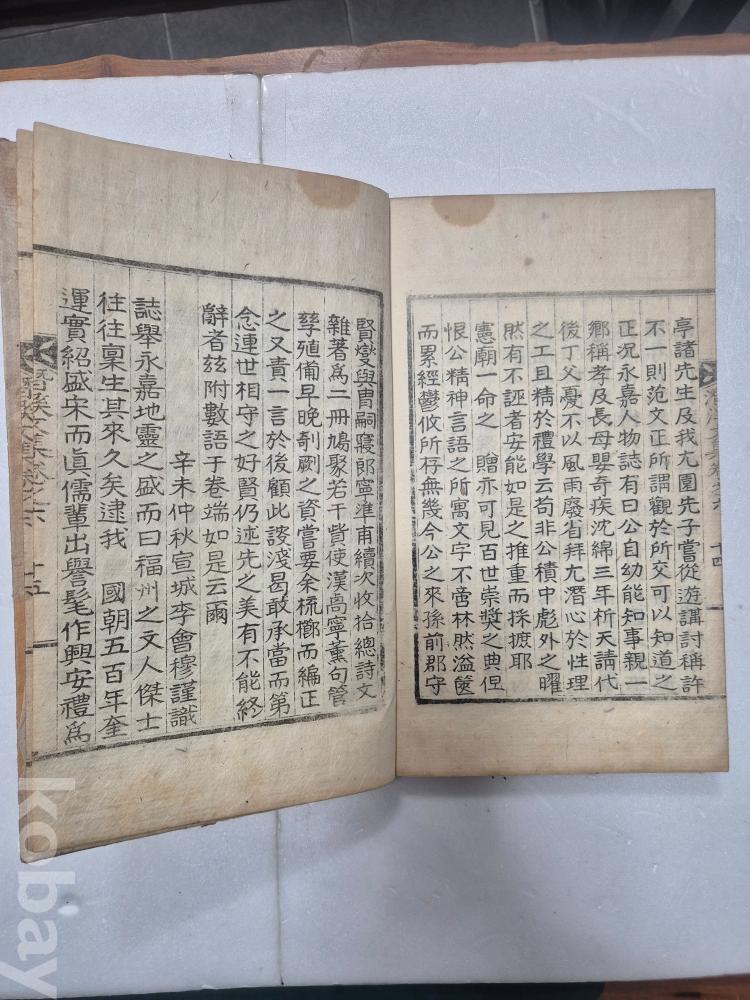 亭諸先生及我亢園先子嘗從遊講討稱許
不一則范文正所謂觀於所交可以知道之
正况永嘉人物誌有曰公自幼能知事親一
鄉稱孝及長母嬰奇疾沈綿三年祈天請代
後丁父憂不以風雨廢省拜尤潛心於性理
之工且精於禮學云苟非公積中彪外之曜
然有不誣者安能如是之推重而採摭耶
憲廟一命之 贈亦可見百世崇奬之典但
恨公精神言語之所寓文字不啻林然溢篋
而累經鬱攸所存無幾今公之來孫前郡守
賢燮與胄嗣寢郎寧準甫續次收拾總詩文
雜著爲二冊鳩聚若干貲使漢高寧薰句管
孶殖備早晩剞劂之資嘗要余梳擲而編正
之又責一言於後顧此謏淺曷敢承當而第
念連世相守之好賢仍述先之美有不能終
辭者玆附數語于卷端如是云爾
辛未仲秋宣城李會穆謹識
誌舉永嘉地靈之盛而曰福州之文人傑士
往往稟生其來久矣逮我 國朝五百年奎
運實紹盛宋而眞儒輩出譽髦作興安禮爲
文集卷之六 十五
kobay